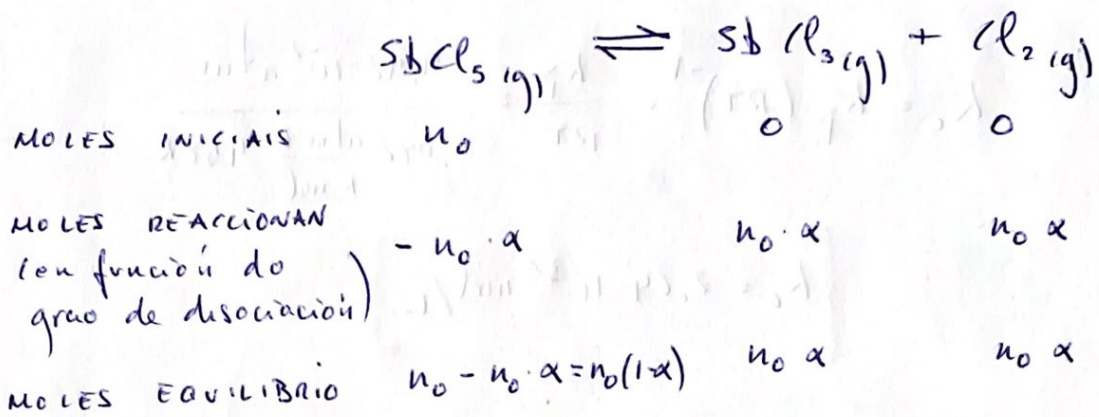 SbCl₅ (g) ⇌ SbCl₃ (g) + Cl₂ (g)
MOLES INICIAIS n₀ 0 0
MOLES REACCIONAN
(en función do
grao de disociación) - n₀·α n₀·α n₀ α
MOLES EQUILIBRIO n₀ - n₀·α = n₀(1-α) n₀ α n₀ α